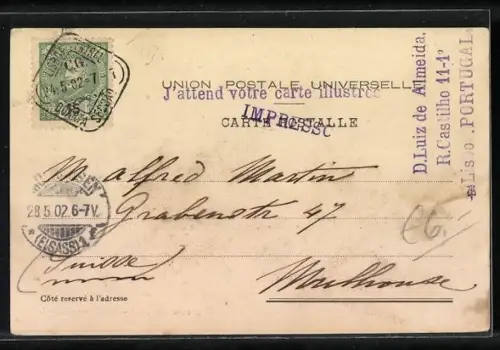 UNION POSTALE UNIVERSELLE
J'attend votre carte illustrée
IMPRESSO
CARTE POSTALLE
D. Luiz de Almeida.
R. Castilho 11-1º
Lisbo PORTUGAL
C.G.
24.5.02-7
15
28.5.02.6-7V.
*(ELSASS)1*
M. Alfred Martin
Grabenstr 47
Suisse
Mulhouse
Côté reservé à l'adresse